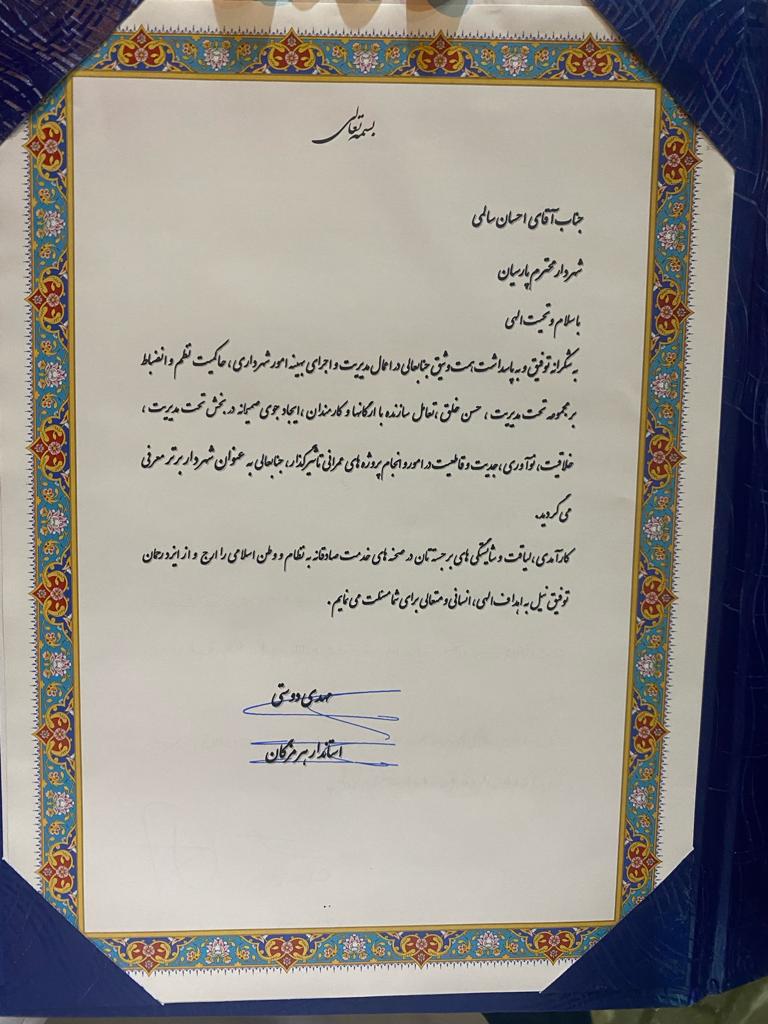 بسمه تعالی
جناب آقای احسان سالمی
شهردار محترم پارسیان
با سلام و تحیت الهی
به شکرانه توفیق و به پاسداشت همت وثیق جنابعالی در اعمال مدیریت و اجرای بهینه امور شهرداری ، حاکمیت نظم و انضباط
بر مجموعه تحت مدیریت ، حسن خلق ، تعامل سازنده با ارگانها و کارمندان ، ایجاد جوی صمیمانه در بخش تحت مدیریت ،
خلاقیت ، نوآوری ، جدیت و قاطعیت در امور و انجام پروژه های عمرانی تاثیرگذار ، جنابعالی به عنوان شهردار برتر معرفی
می گردید.
کارآمدی ، لیاقت و شایستگی های برجسته تان در صحنه های خدمت صادقانه به نظام و وطن اسلامی را ارج و از ایزد رحمان
توفیق نیل به اهداف الهی ، انسانی و متعالی برای شما مسئلت می نمایم .
مهدی دوستی
استاندار هرمزگان